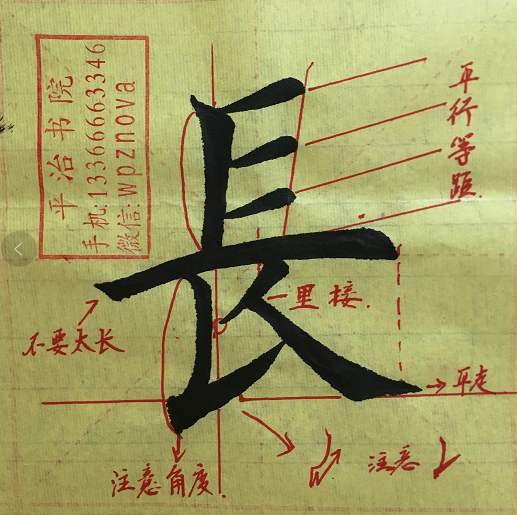 平治书院
手机:13366663346
微信:wpznova
長
平行等距
里接
不要太长
平走
注意角度
注意